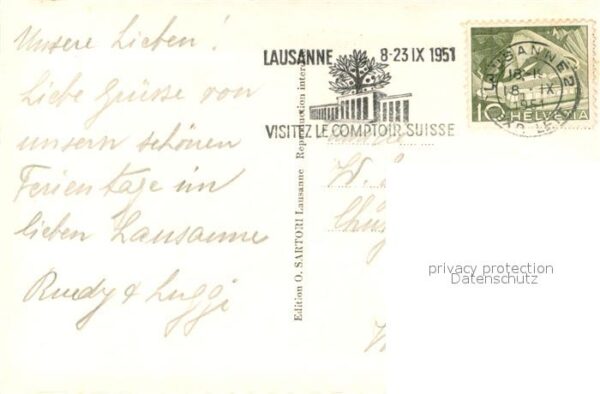 Unsere Lieben!
Liebe Grüsse von
unsern schönen
Ferientage im
lieben Lausanne
Ruedy &
Edition O. SARTORI Lausanne Reproduction inter
LAUSANNE 8-23 IX 1951
VISITEZ LE COMPTOIR SUISSE
LAUSANNE 2
18. IX
1951
10 HELVETIA
W.
privacy protection
Datenschutz